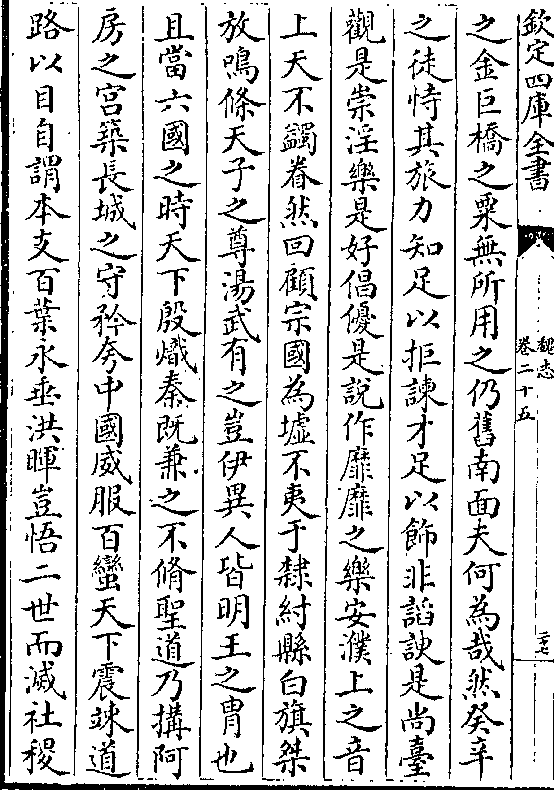 欽定四庫全書
魏志
卷二十五
二十七
之金巨橋之粟無所用之仍舊南面夫何為哉然癸辛
之徒恃其旅力知足以拒諫才足以飾非諂諛是尚臺
觀是崇淫樂是好倡優是說作靡靡之樂安濮上之音
上天不蠲眷然回顧宗國為墟不夷于隸紂縣白旗桀
放鳴條天子之尊湯武有之豈伊異人皆明王之胄也
且當六國之時天下殷熾秦既兼之不脩聖道乃搆阿
房之宮築長城之守矜夸中國威服百蠻天下震竦道
路以目自謂本支百葉永垂洪暉豈悟二世而滅社稷